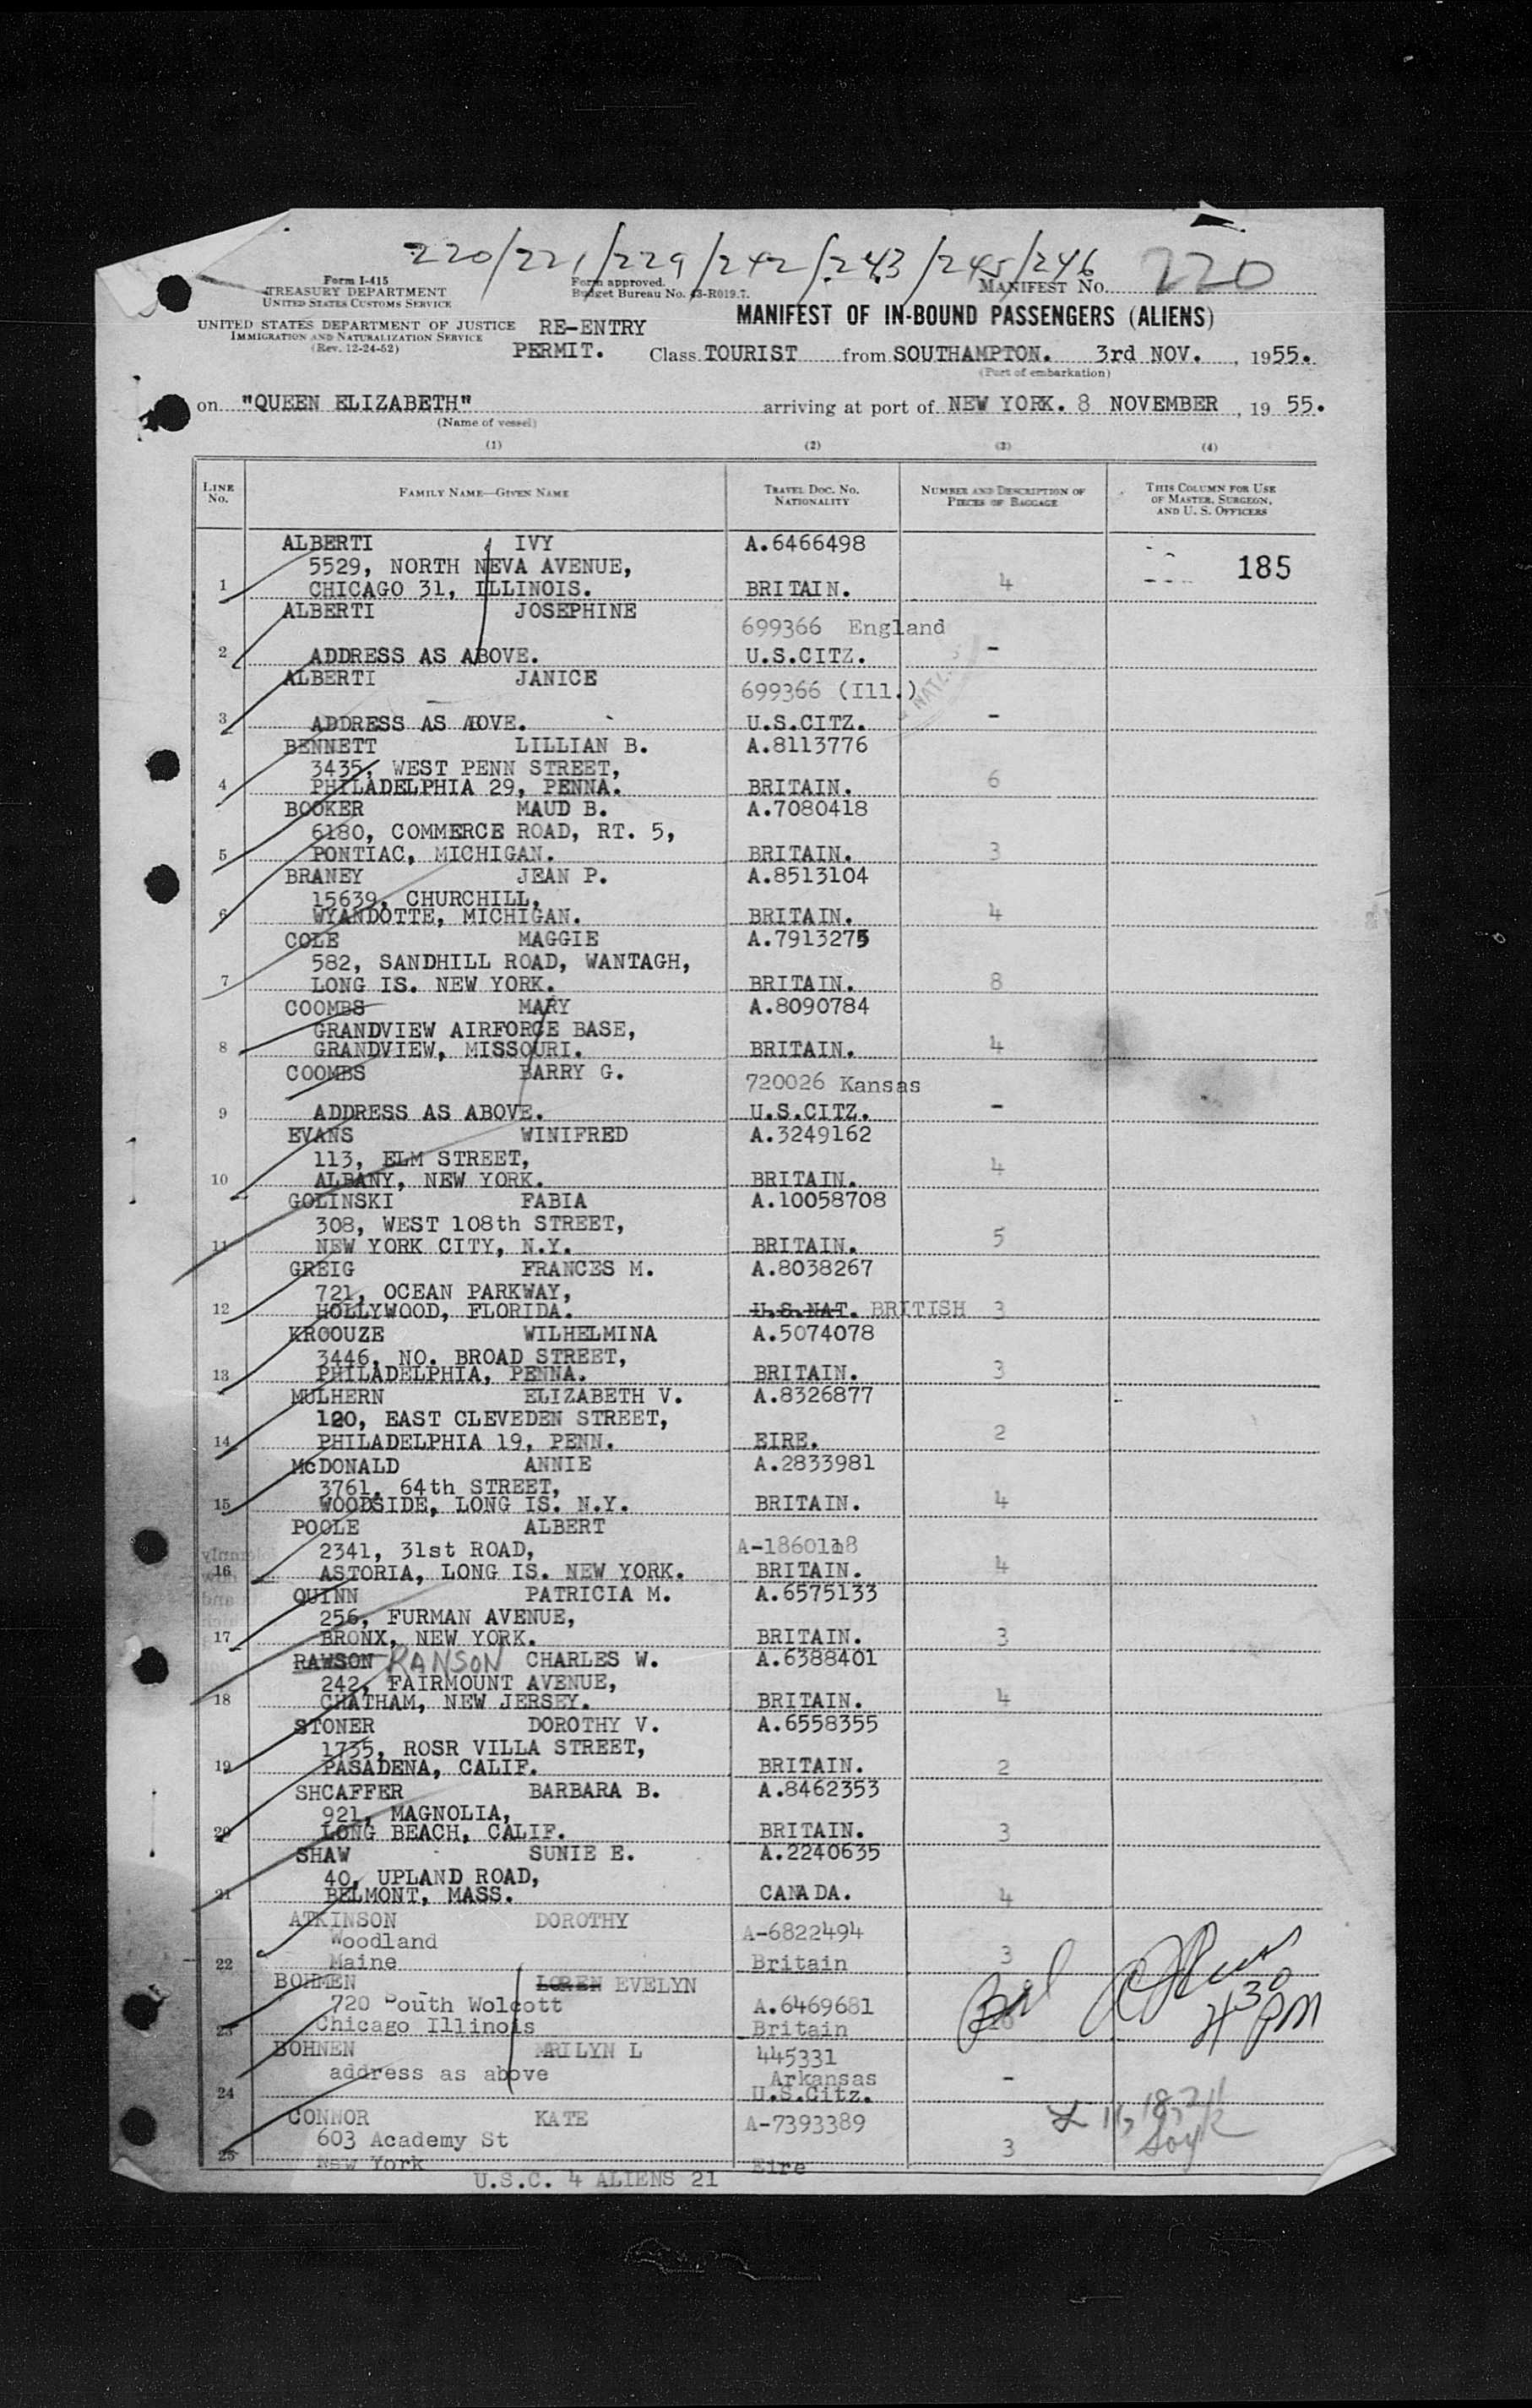 220/221/229/242/243/245/246
Form I-415
TREASURY DEPARTMENT
UNITED STATES CUSTOMS SERVICE
Form approved.
Budget Bureau No. 43-R019.7.
MANIFEST NO. 220
UNITED STATES DEPARTMENT OF JUSTICE
IMMIGRATION AND NATURALIZATION SERVICE
(Rev. 12-24-52)
RE-ENTRY
PERMIT.
MANIFEST OF IN-BOUND PASSENGERS (ALIENS)
Class TOURIST from SOUTHAMPTON. 3rd NOV. , 1955.
(Port of embarkation)
on "QUEEN ELIZABETH" arriving at port of NEW YORK. 8 NOVEMBER , 19 55.
(Name of vessel)
(1) (2) (3) (4)
LINE NO. FAMILY NAME—GIVEN NAME TRAVEL DOC. NO. NATIONALITY NUMBER AND DESCRIPTION OF PIECES OF BAGGAGE THIS COLUMN FOR USE OF MASTER, SURGEON, AND U. S. OFFICERS
ALBERTI IVY A.6466498
5529, NORTH NEVA AVENUE, 185
1 CHICAGO 31, ILLINOIS. BRITAIN. 4
ALBERTI JOSEPHINE
699366 England
2 ADDRESS AS ABOVE. U.S.CITZ. -
ALBERTI JANICE
699366 (Ill.)
NATL.
3 ADDRESS AS AOVE. U.S.CITZ. -
BENNETT LILLIAN B. A.8113776
3435, WEST PENN STREET,
4 PHILADELPHIA 29, PENNA. BRITAIN. 6
BOOKER MAUD B. A.7080418
6180, COMMERCE ROAD, RT. 5,
5 PONTIAC, MICHIGAN. BRITAIN. 3
BRANEY JEAN P. A.8513104
15639, CHURCHILL,
6 WYANDOTTE, MICHIGAN. BRITAIN. 4
COLE MAGGIE A.7913275
582, SANDHILL ROAD, WANTAGH,
7 LONG IS. NEW YORK. BRITAIN. 8
COOMBS MARY A.8090784
GRANDVIEW AIRFORCE BASE,
8 GRANDVIEW, MISSOURI. BRITAIN. 4
COOMBS BARRY G.
720026 Kansas
9 ADDRESS AS ABOVE. U.S.CITZ. -
EVANS WINIFRED A.3249162
113, ELM STREET,
10 ALBANY, NEW YORK. BRITAIN. 4
GOLINSKI FABIA A.10058708
308, WEST 108th STREET,
11 NEW YORK CITY, N.Y. BRITAIN. 5
GREIG FRANCES M. A.8038267
721, OCEAN PARKWAY,
12 HOLLYWOOD, FLORIDA. U.S.NAT. BRITISH 3
KROOUZE WILHELMINA A.5074078
3446, NO. BROAD STREET,
13 PHILADELPHIA, PENNA. BRITAIN. 3
MULHERN ELIZABETH V. A.8326877
120, EAST CLEVEDEN STREET,
14 PHILADELPHIA 19, PENN. EIRE. 2
McDONALD ANNIE A.2833981
3761, 64th STREET,
15 WOODSIDE, LONG IS. N.Y. BRITAIN. 4
POOLE ALBERT
2341, 31st ROAD, A-1860118
16 ASTORIA, LONG IS. NEW YORK. BRITAIN. 4
QUINN PATRICIA M. A.6575133
256, FURMAN AVENUE,
17 BRONX, NEW YORK. BRITAIN. 3
RAWSON RANSON CHARLES W. A.6388401
242, FAIRMOUNT AVENUE,
18 CHATHAM, NEW JERSEY. BRITAIN. 4
STONER DOROTHY V. A.6558355
1735, ROSR VILLA STREET,
19 PASADENA, CALIF. BRITAIN. 2
SHCAFFER BARBARA B. A.8462353
921, MAGNOLIA,
20 LONG BEACH, CALIF. BRITAIN. 3
SHAW SUNIE E. A.2240635
40, UPLAND ROAD,
21 BELMONT, MASS. CANADA. 4
ATKINSON DOROTHY A-6822494
Woodland
22 Maine Britain 3
BOHMEN LOREN EVELYN
720 South Wolcott A.6469681
23 Chicago Illinois Britain
4 30 PM
BOHNEN MARILYN L 445331
address as above Arkansas
24 U.S.Citz. -
CONNOR KATE A-7393389
603 Academy St
25 New York Eire 3
U.S.C. 4 ALIENS 21